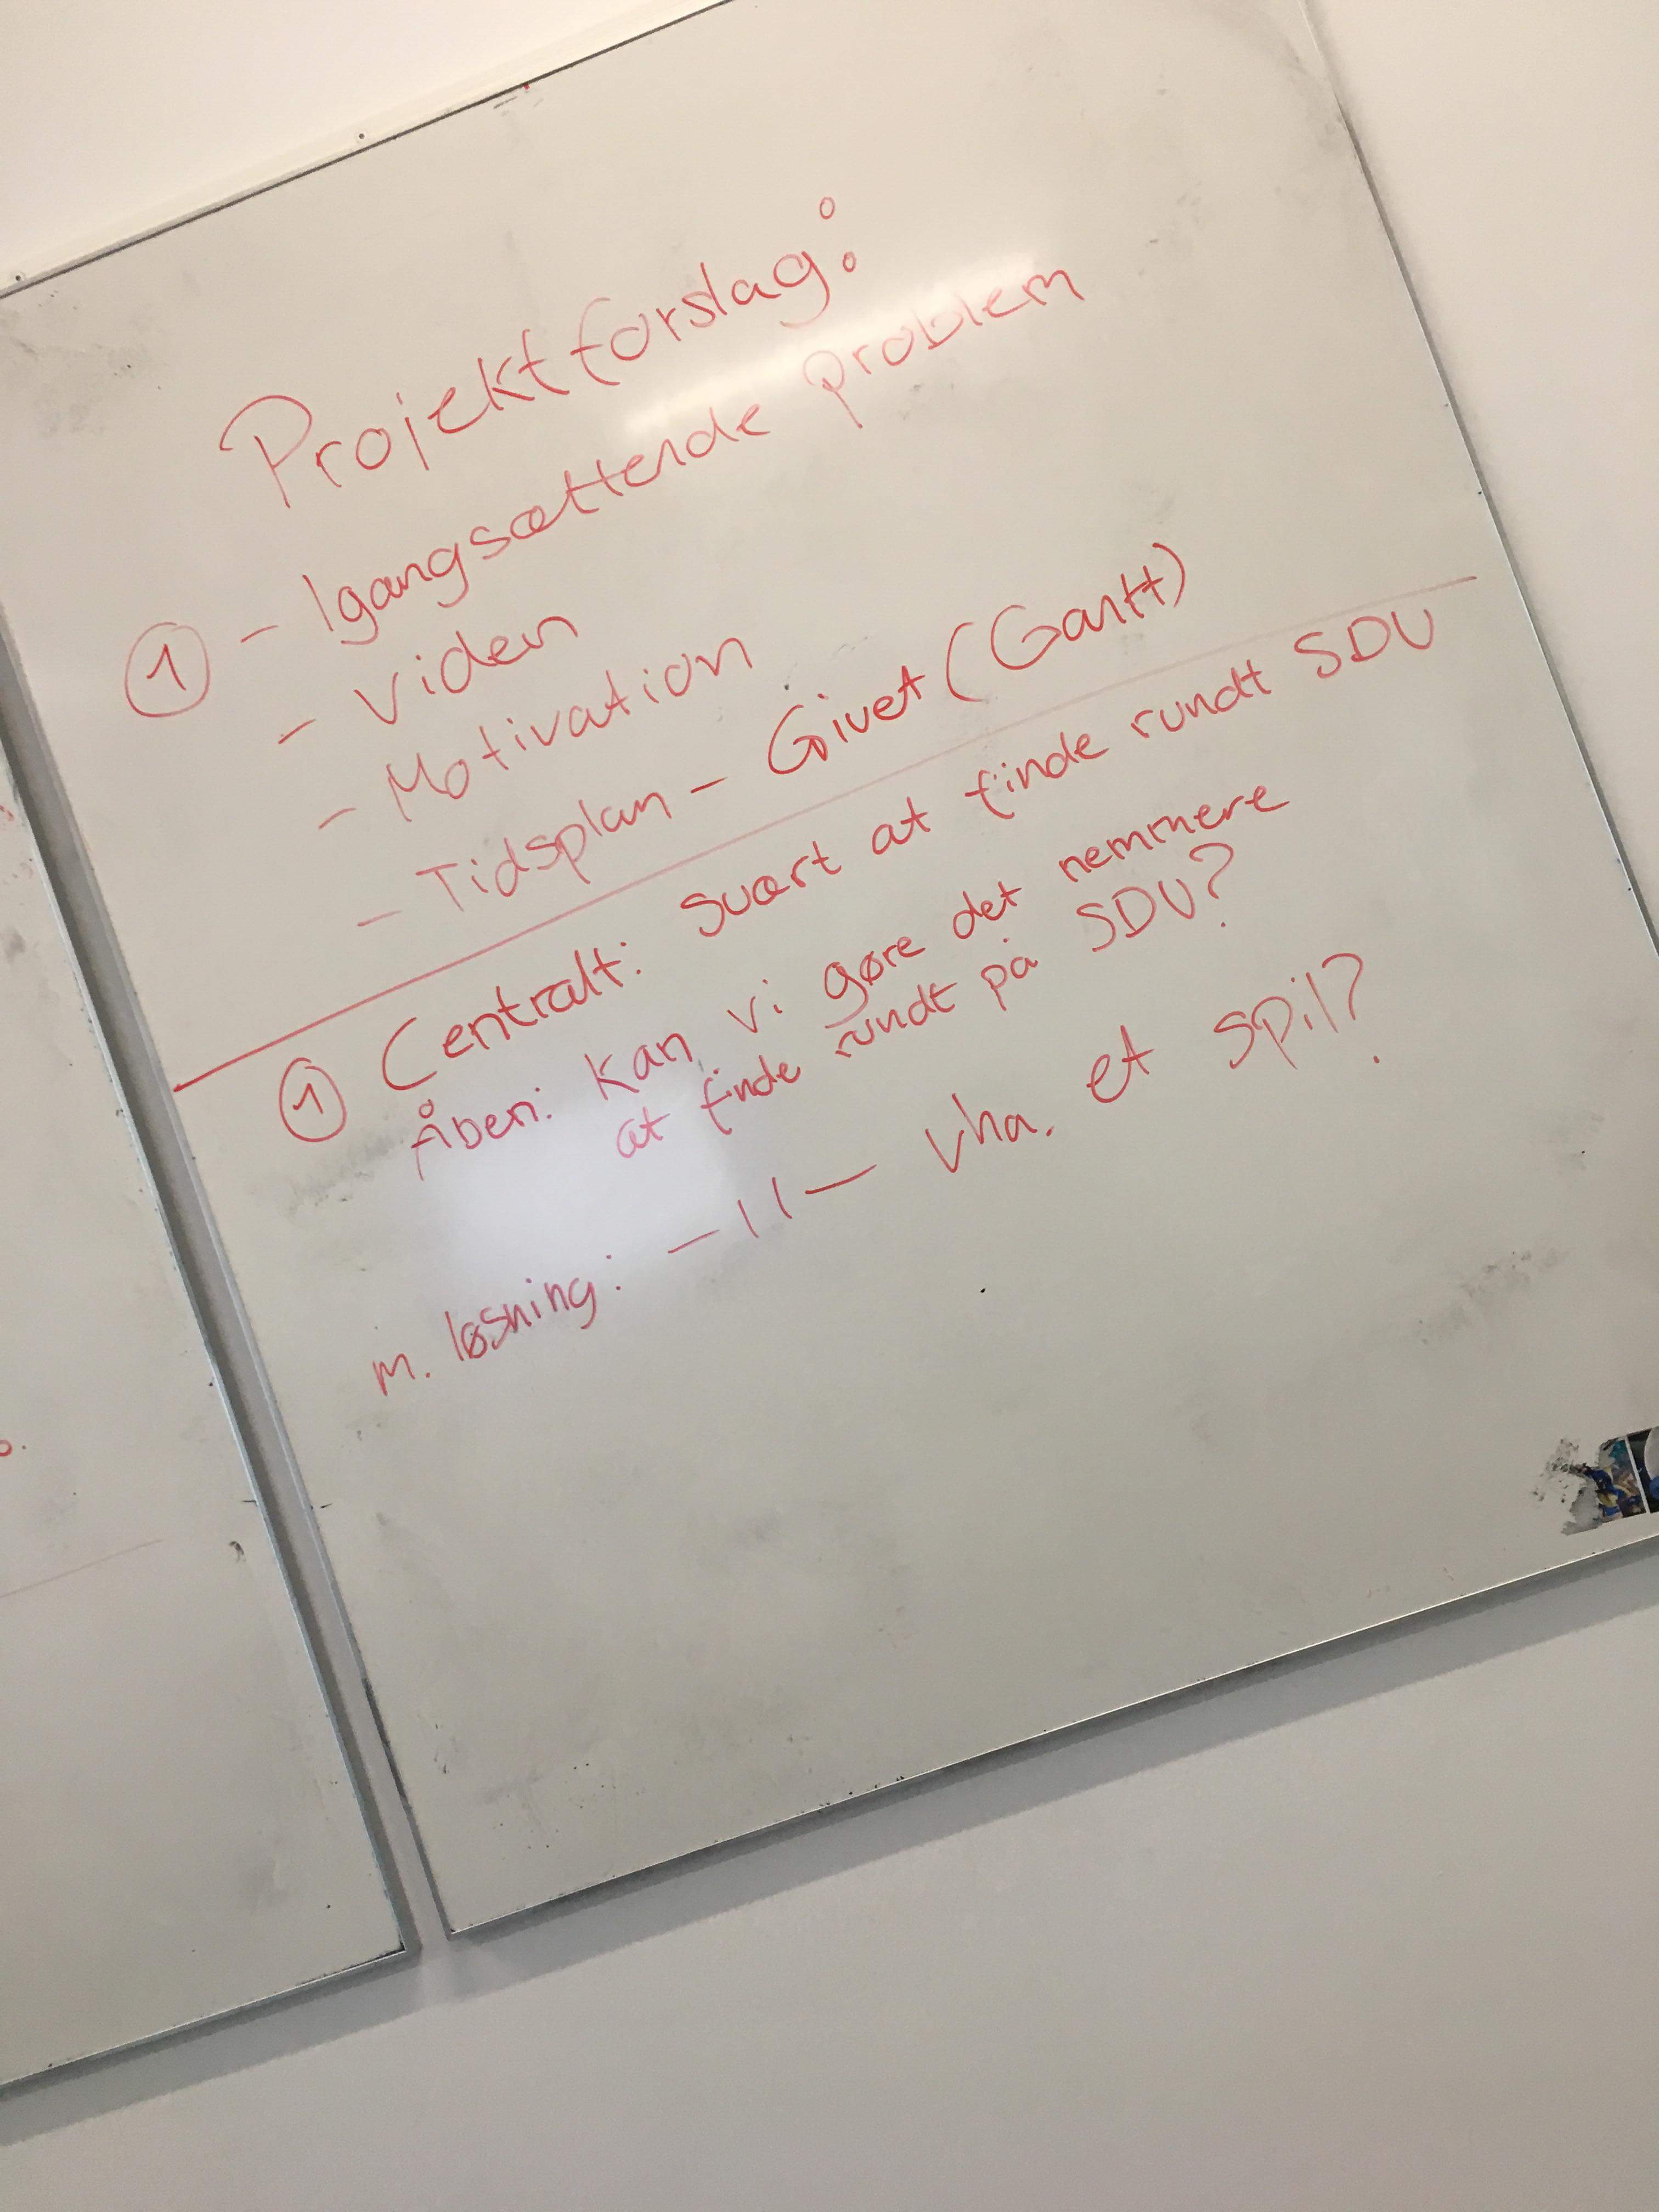 Projektforslag:
① - Igangsættende problem
- Viden
- Motivation
- Tidsplan - Givet (Gantt)
① Centralt: svært at finde rundt SDU
Åben: Kan vi gøre det nemmere
at finde rundt på SDU?
m. løsning: -11- vha. et spil?